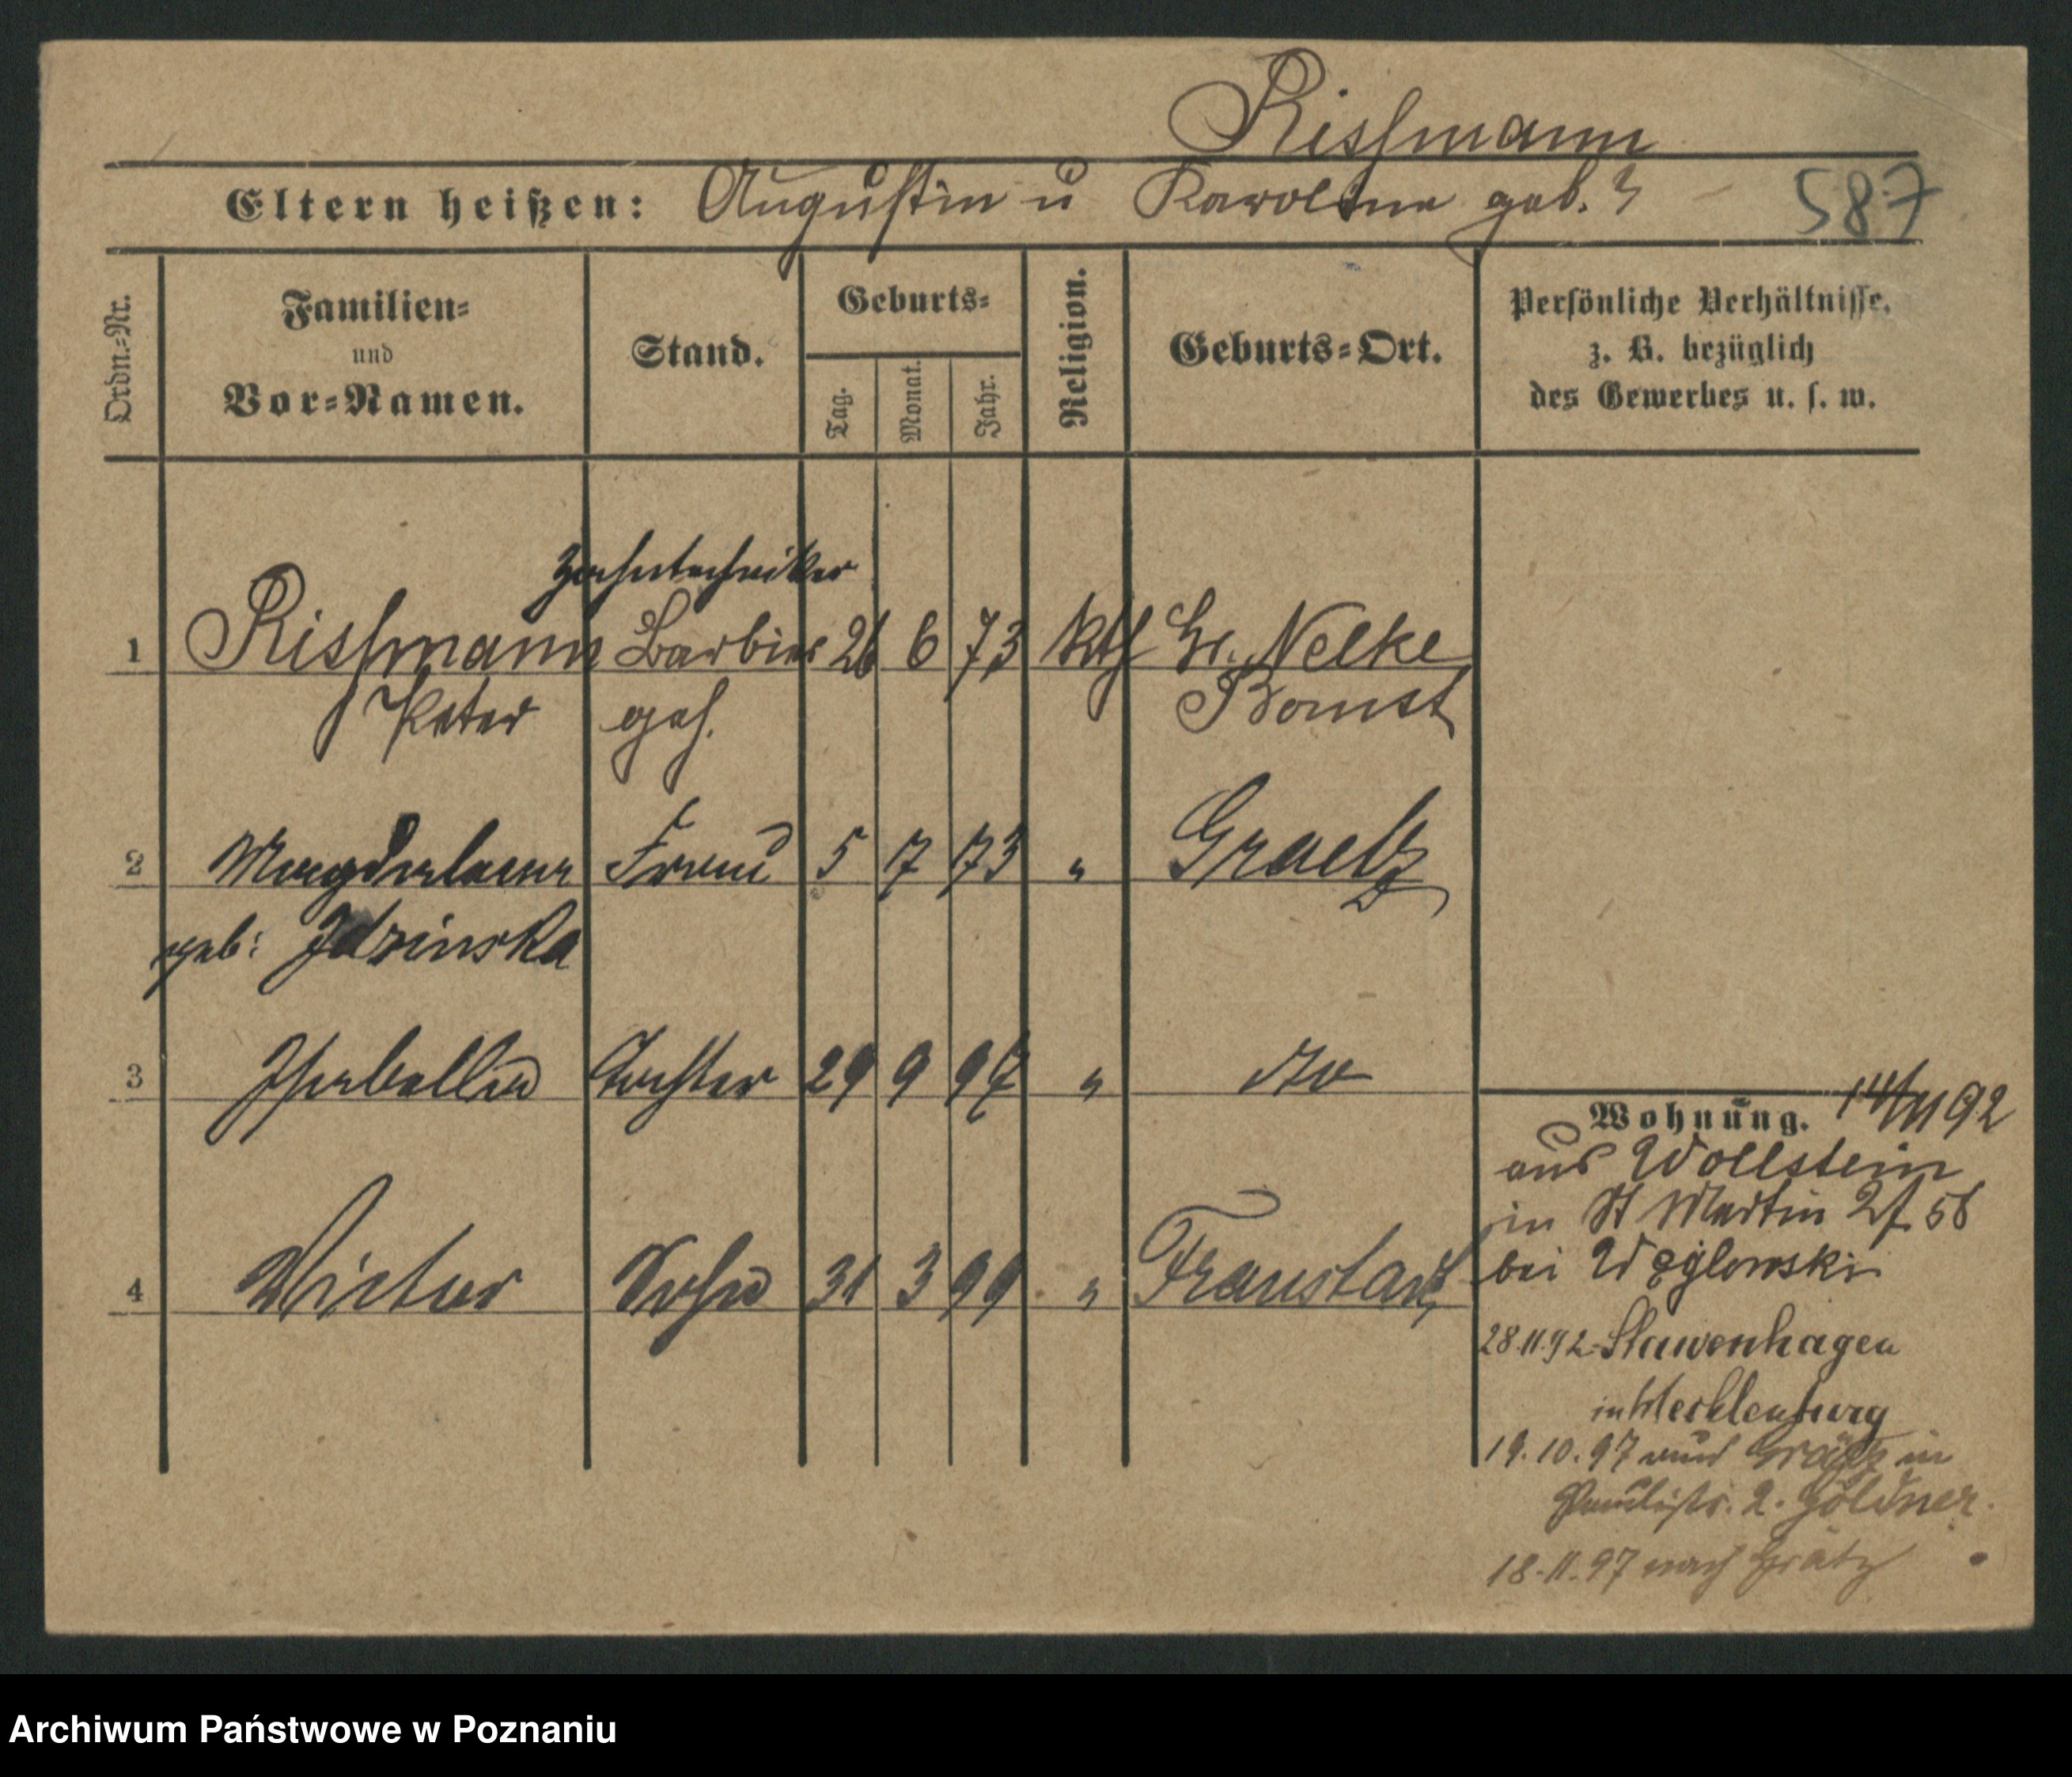 Rissmann
Eltern heißen: Augustin u Karolina geb. ?
587
Ordn.-Nr.
Familien-
und
Vor-Namen.
Stand.
Geburts-
Tag. Monat. Jahr.
Religion.
Geburts-Ort.
Persönliche Verhältnisse,
z. B. bezüglich
des Gewerbes u. s. w.
Zahntechniker
1 Rissmann Barbier 26 6 73 kth Gr. Nelke
Peter geh. Bomst
2 Magdalena Frau 5 7 73 " Graetz
geb: Idzinska
3 Isabella Tochter 29 9 97 " do
4 Victor Sohn 31 3 99 " Fraustadt
Wohnung. 14/11 92
aus Wollstein
in St Martin 56
bei Węglewski
28.11.92 Stavenhagen
in Mecklenburg
19.10.97 aus Grätz in
Paulistr. 2. Göldner.
18.11.97 nach Grätz
Archiwum Państwowe w Poznaniu